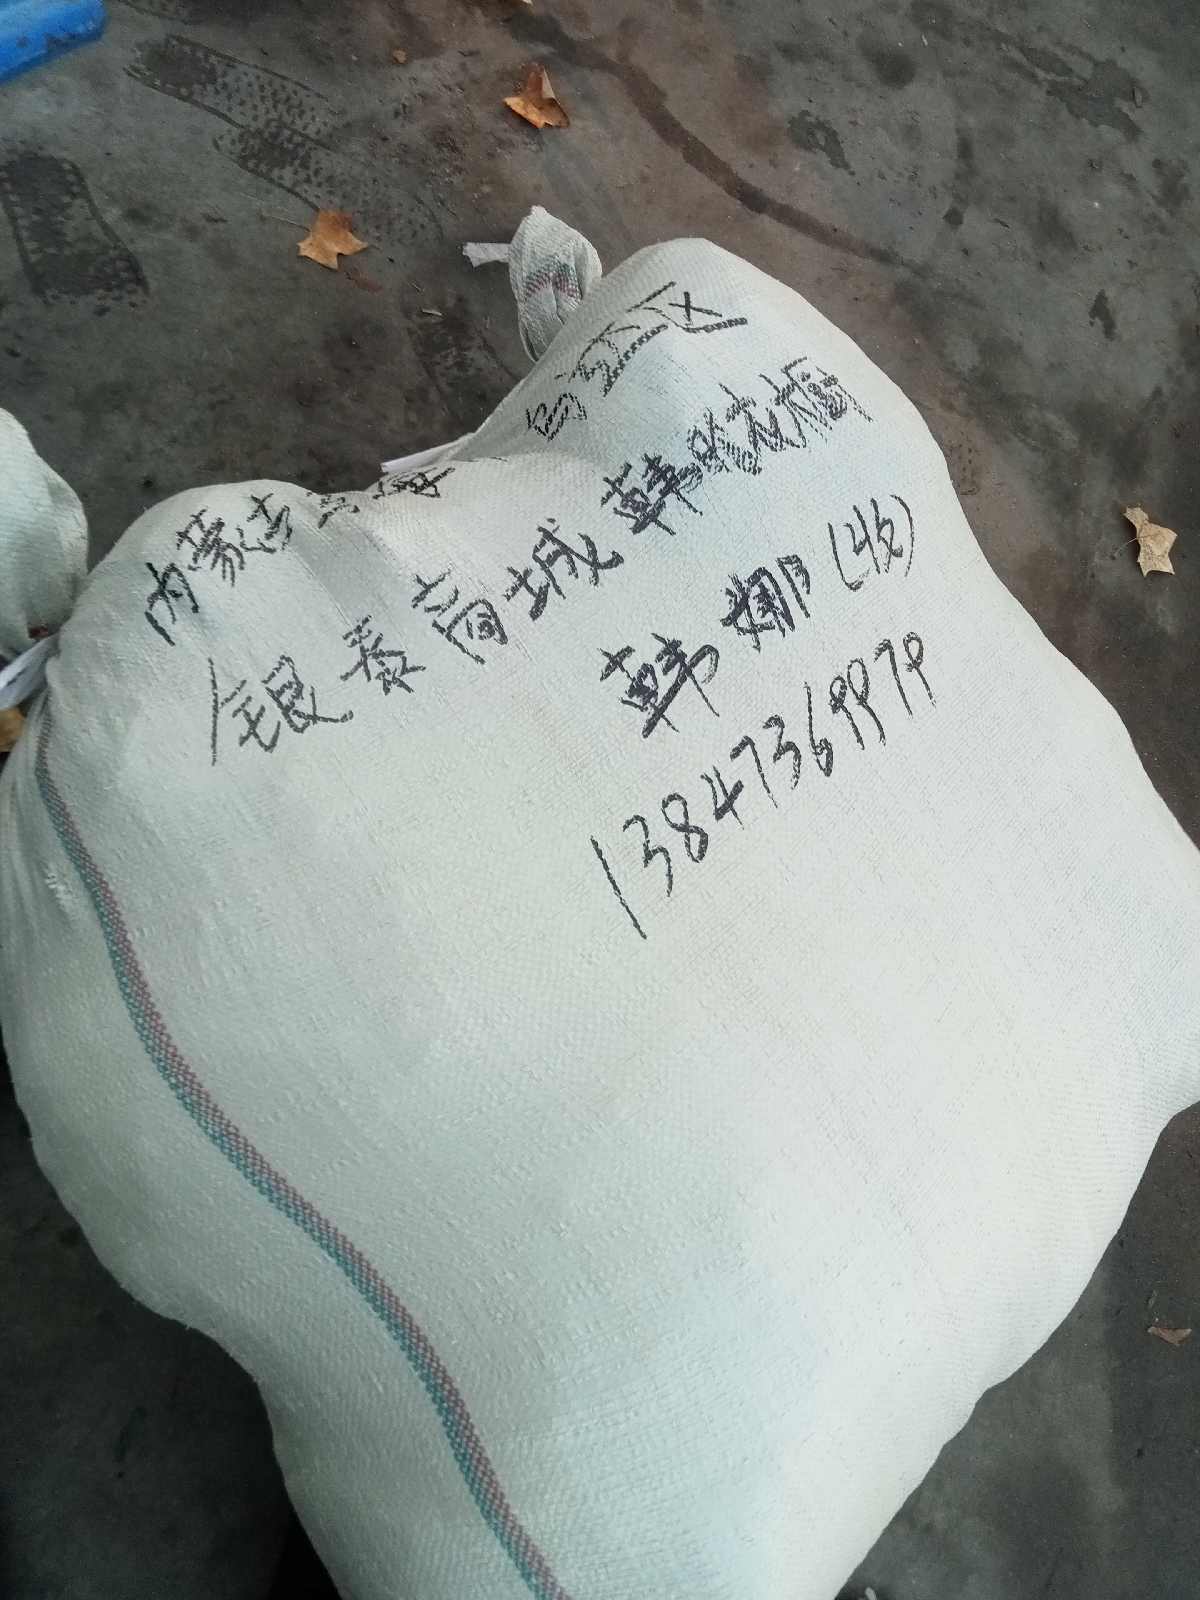 内蒙古乌海 乌达区
银泰商城韩的衣橱
韩娜(收)
13847369979